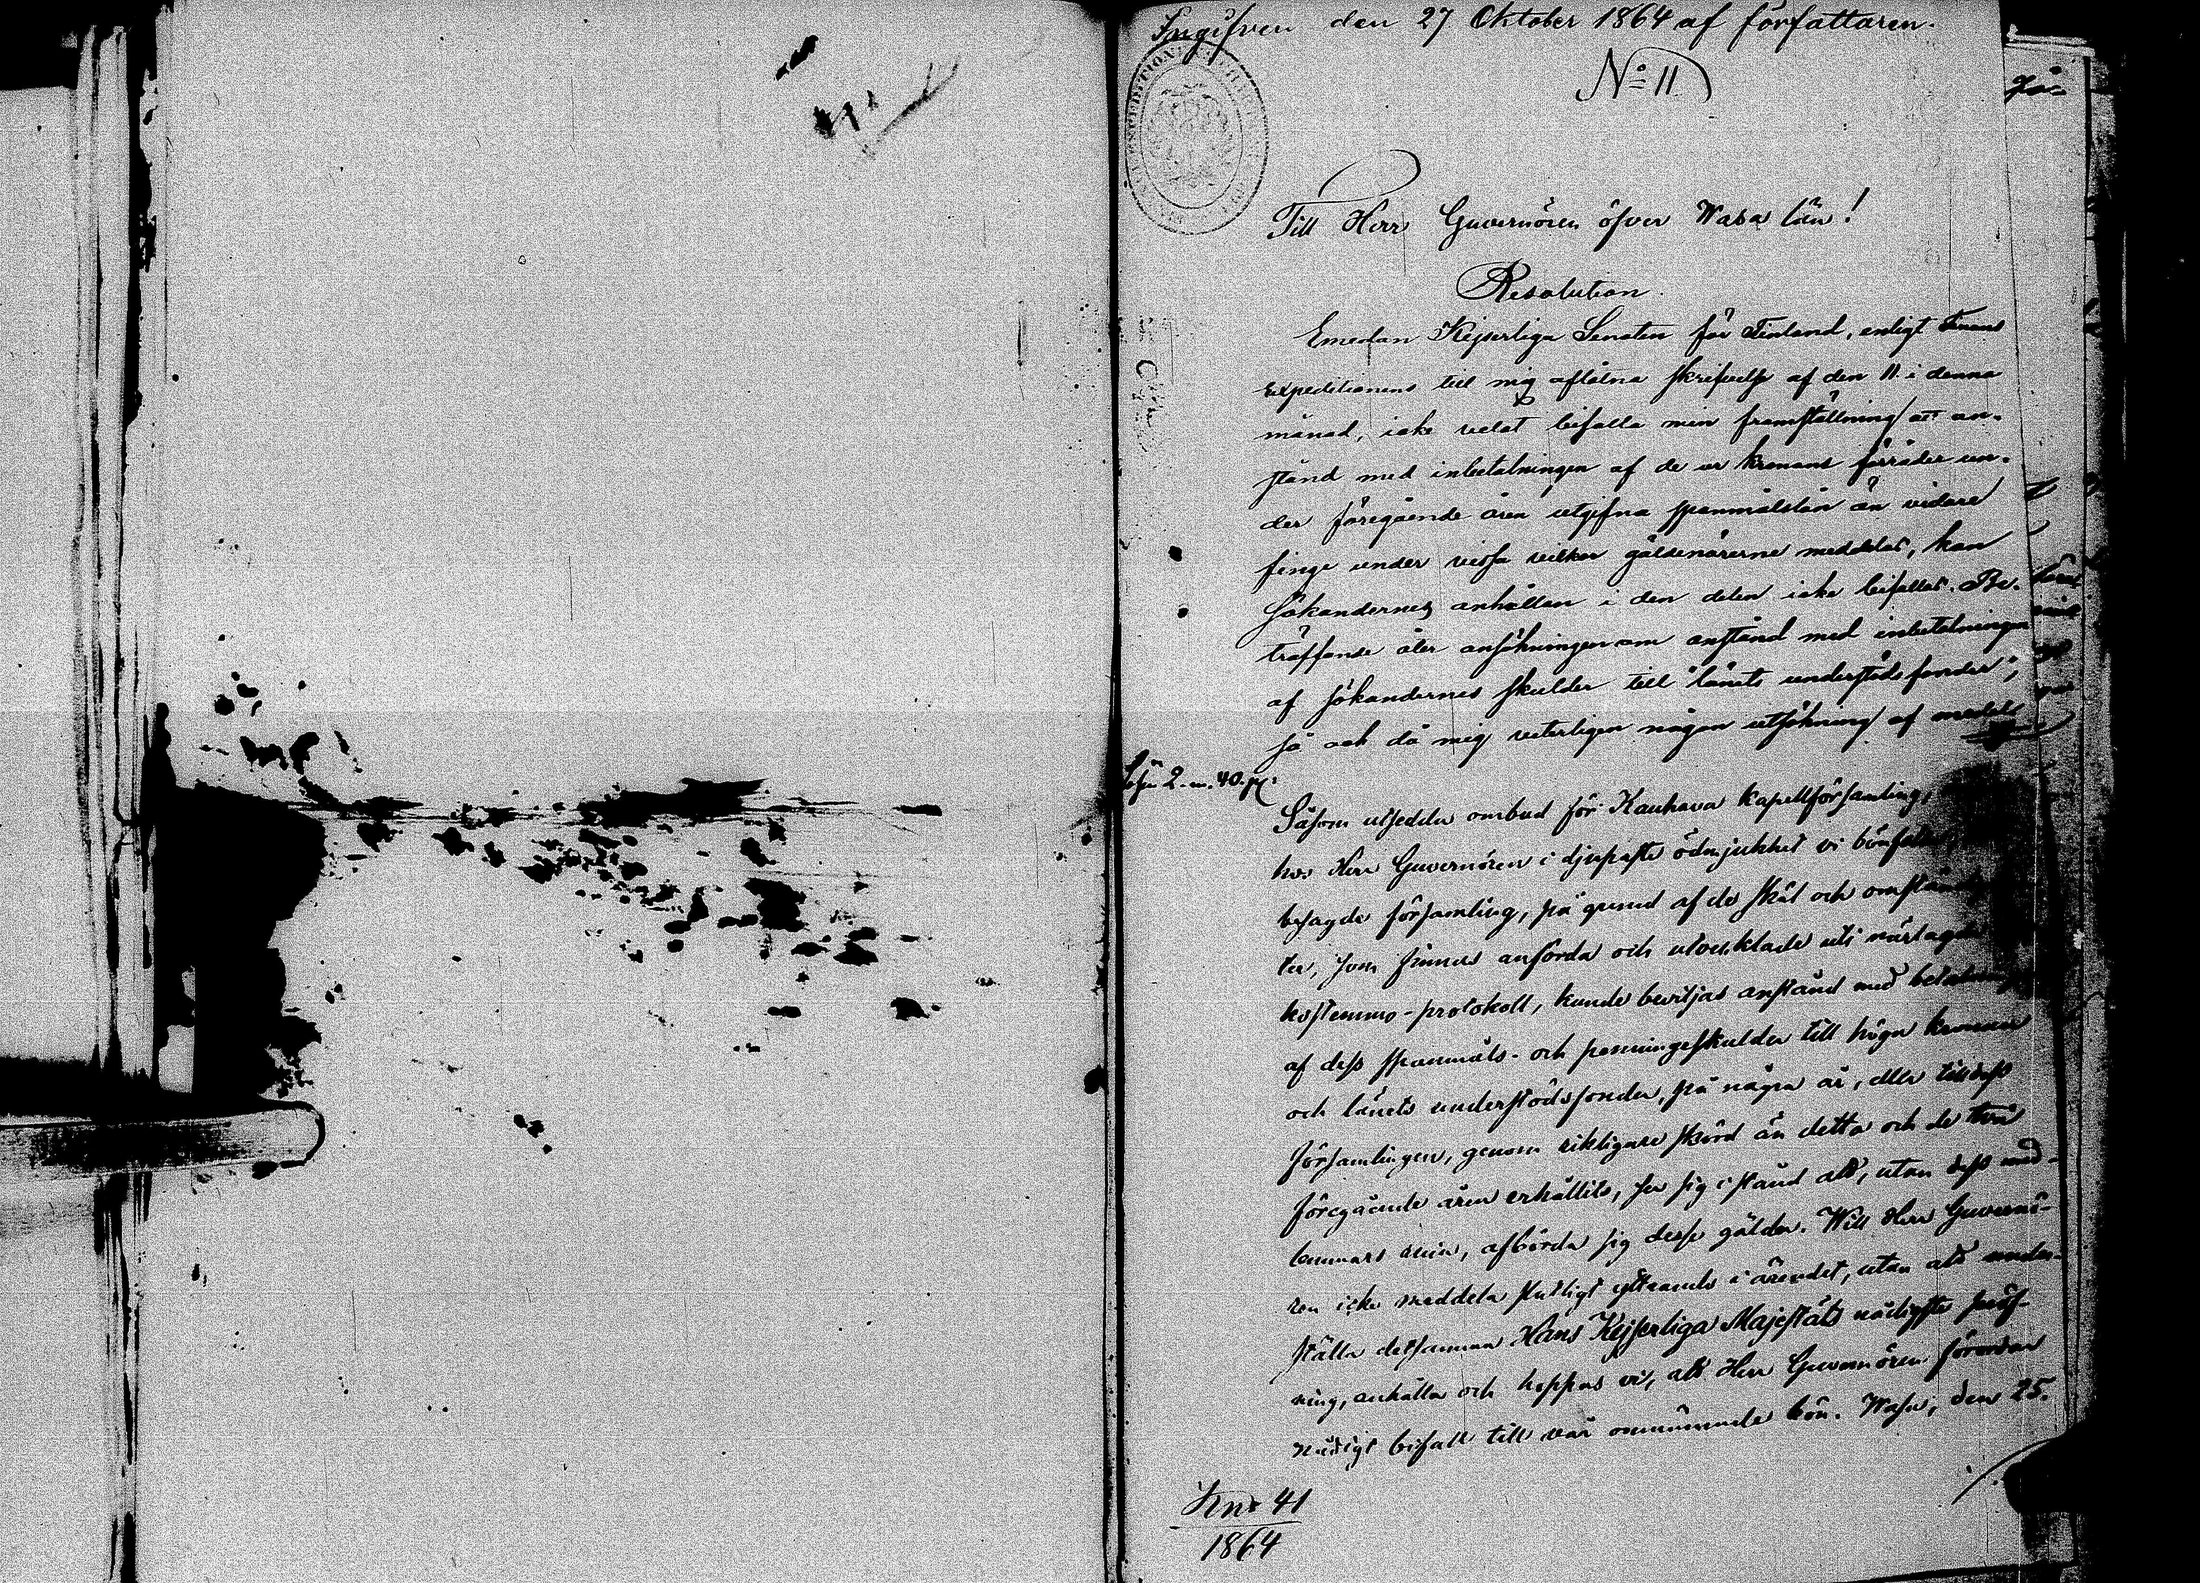 Ingifven den 27 Oktober 1864 af författaren.
No 11
Till Herr Guvernören öfver Wasa län!
Resolution.
Emedan Kejserliga Senaten för Finland, enligt Finans
expeditionens till mig aflåtna skrifvelse af den 11 i denna
månad, icke velat bifalla min framställning att an-
stånd med inbetalningen af de ur kronans förråder un-
der föregående åren utgifna spanmålslån än vidare
finge under vissa vilkor gäldenärerne meddelas, kan
sökandernes anhållan i den delen icke bifallas. Be-
träffande åter ansökningen om anstånd med inbetalningen
af sökandernes skulder till länets understödsfonder;
så och då mig veterligen någon utsökning af
Lösen 2 m. 40 p.
Såsom utsedde ombud för Kauhava kapellförsamling,
hos Herr Guvernören i djupaste ödmjukhet vi bönfalla,
besagde församling, på grund af de skäl och omständig
ter, som finnas anförda och utvecklade uti närlagde
kostemmo-protokoll, kunde beviljas anstånd med betalning
af dess spanmåls- och penningeskulder till höga kronan
och länets understödsfonder, på några år, eller tilldess
församlingen, genom rikligare skörd än detta och de två
föregående åren erhållits, ser sig i stånd att, utan dess med-
lemmars ruin, afbörda sig desse gälder. Will Herr Guvernö-
ren icke meddela slutligt yttrande i ärendet, utan att under-
ställa detsamma Hans Kejserliga Majestäts nådigste pröf-
ning, anhålla och hoppas vi, att Herr Guvernören förordar
nådigt bifall till vår omnämnde bön. Wasa, den 25.
Kn: 41
1864